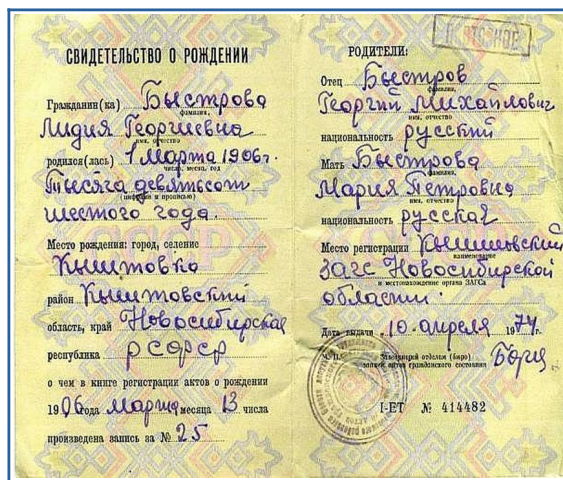 СВИДЕТЕЛЬСТВО О РОЖДЕНИИ
Гражданин(ка) Быстрова
фамилия,
Лидия Георгиевна
имя, отчество
родился(лась) 1 марта 1906г.
число, месяц, год
Тысяча девятьсот
(цифрами и прописью)
шестого года.
Место рождения: город, селение
Кыштовка
район Кыштовский
область, край Новосибирская
республика РСФСР
о чем в книге регистрации актов о рождении
1906 года марта месяца 13 числа
произведена запись за № 25
РОДИТЕЛИ:
Отец Быстров
фамилия,
Георгий Михайлович
имя, отчество
национальность русский
Мать Быстрова
фамилия,
Мария Петровна
имя, отчество
национальность русская
Место регистрации Кыштовский
наименование
ЗАГС Новосибирской
и местонахождение органа ЗАГСа
области.
Дата выдачи „10“ апреля 1974г.
М. П. Заведующий отделом (бюро)
записи актов гражданского состояния
I-ЕТ № 414482